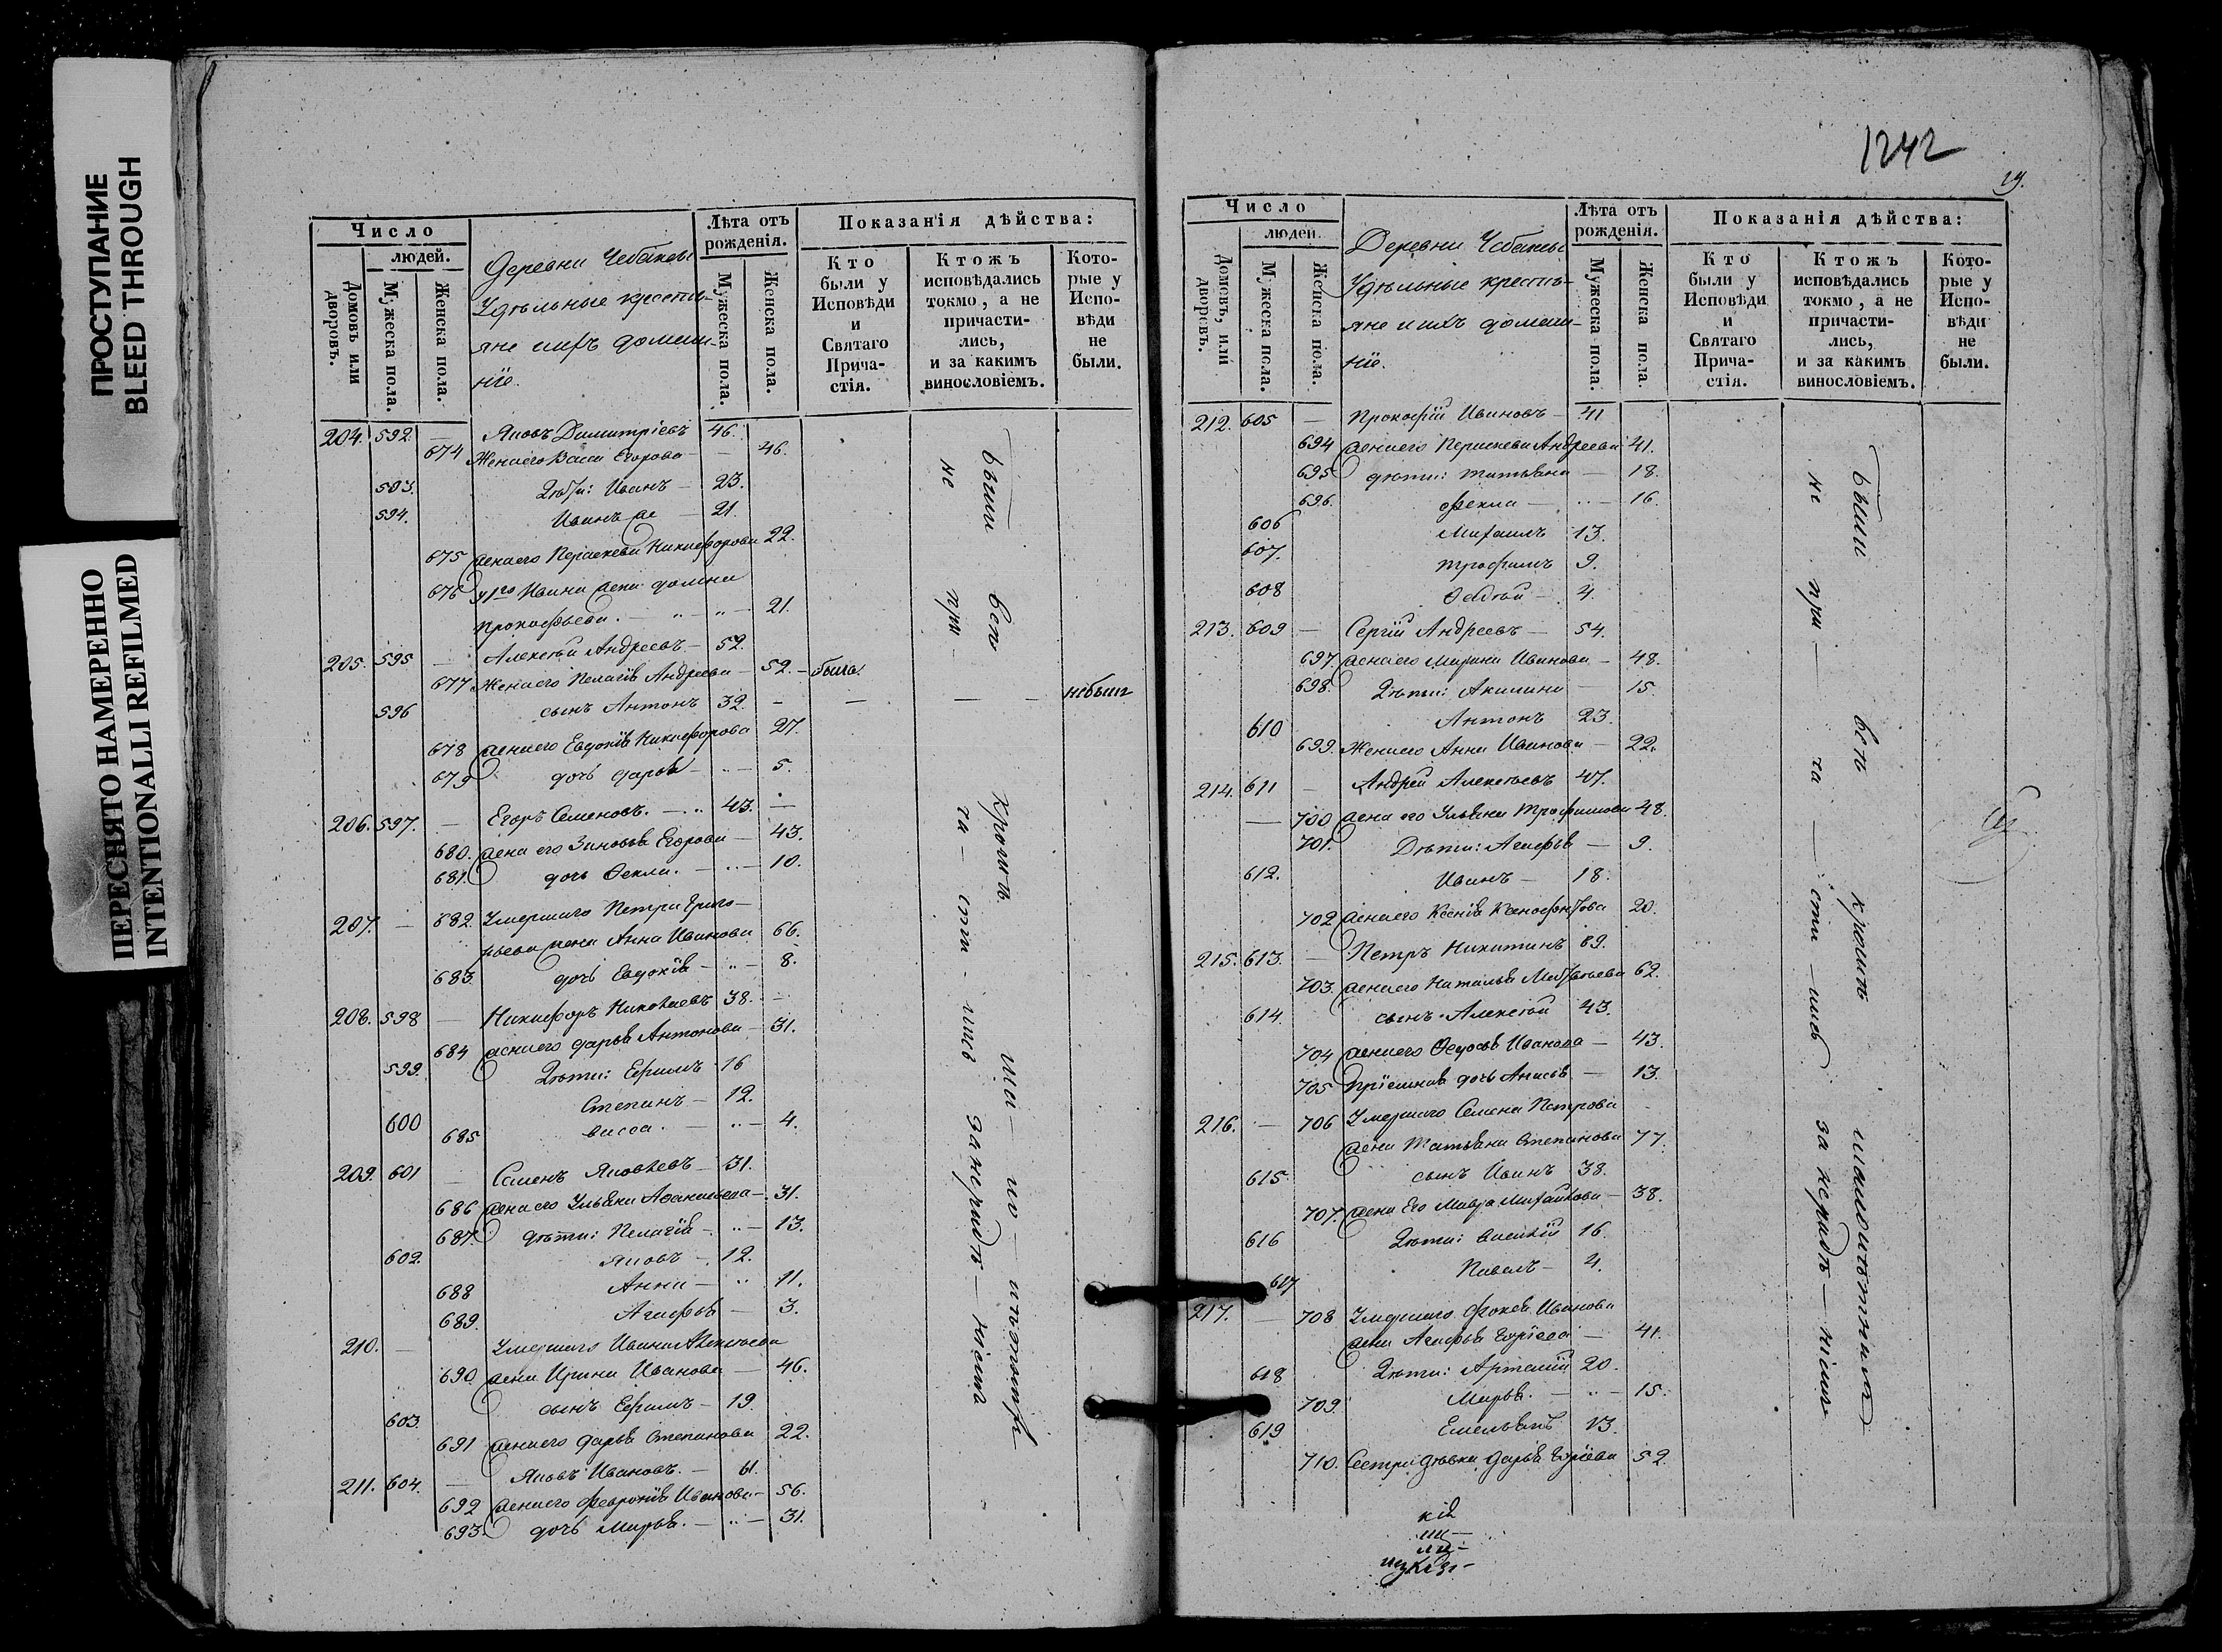 ПРОСТУПАНИЕ
BLEED THROUGH
ПЕРЕСНЯТО НАМЕРЕННО
INTENTIONALLI REFILMED
Число
людей.
Домовъ или дворовъ.
Мужеска пола.
Женска пола.
Деревни Чебаксы
Удѣльные крестья-
яне и ихъ домаш-
нiе.
Лѣта отъ рожденія.
Мужеска пола.
Женска пола.
Показанія дѣйства:
Кто были у Исповѣди и Святаго Прича-стія.
Ктожъ исповѣдались токмо, а не причасти-лись, и за какимъ винословіемъ.
Кото-рые у Испо-вѣди не были.
204. 592. — Яковъ Димитріевъ 46.
674 Жена его Васса Егорова — 46.
593. Дѣти: Иванъ — 23.
594. Иванъ же — 21.
675 жена его Параскева Никифорова 22.
676 у 1го Ивана жена Домна
Прокофьева. — 21.
205. 595 — Алексѣй Андреевъ — 52.
677 Жена его Пелагія Андреева — 52. — была.
596 сынъ Антонъ 32. — — — небылъ
678 жена его Евдокія Никифорова 27.
679 дочь Дарья — 5.
206. 597. — Егоръ Семеновъ. — 43. —
680. жена его Зиновья Егорова — 43.
681. дочь Ѳекла. — 10.
207. — 682 Умершаго Петра Григо-
рьева жена Анна Иванова 66.
683 дочь Евдокія — 8.
208. 598 — Никифоръ Николаевъ 38. —
684 жена его Дарья Антонова — 31.
599. Дѣти: Ефимъ 16
600 Степанъ — 12.
685 Васса. — 4.
209. 601 — Семенъ Яковлевъ — 31.
686 жена его Ульяна Аѳанасьева — 31.
687. дѣти: Пелагія — 13.
602. Яковъ — 12.
688 Анна — 11.
689. Агафья — 3.
210. — Умершаго Ивана Алексѣева
690 жена Ирина Иванова — 46.
603. сынъ Ефимъ — 19.
691 жена его Дарья Степанова 22.
211. 604. — Яковъ Ивановъ. — 61.
692 жена его Февронія Иванова — 56.
693. дочь Марья. — 31.
были всѣ кромѣ
не при — ча — сти — лись за нерадѣ — нiемъ
1242
19.
Число
людей.
Домовъ, или дворовъ.
Мужеска пола.
Женска пола.
Деревни Чебаксы
Удѣльные крестья-
яне и ихъ домаш-
нiе.
Лѣта отъ рожденія.
Мужеска пола.
Женска пола.
Показанія дѣйства:
Кто были у Исповѣди и Святаго Прича-стія.
Ктожъ исповѣдались токмо, а не причасти-лись, и за какимъ винословіемъ.
Кото-рые у Испо-вѣди не были.
212. 605 — Прокофій Ивановъ — 41
694 жена его Параскева Андреева 41.
695 дѣти: Татьяна — 18.
696. Фекла — 16.
606 Михаилъ 13.
607. Трофимъ 9.
608 4.
213. 609 — Сергій Андреевъ — 54.
697. жена его Марина Иванова — 48.
698. Дѣти: Акилина — 15.
610 Антонъ 23.
699. Жена его Анна Иванова — 22.
214. 611 — Андрей Алексѣевъ 47.
— 700 жена его Ульяна Трофимова 48.
701. Дѣти: Агафья — 9.
612. Иванъ — 18.
702 жена его Ксенія Ксенофонтова 20.
215. 613. — Петръ Никитинъ 69.
703. жена его Наталья Матвѣева 62.
614. сынъ Алексѣй 43.
704 жена его Ѳедосья Иванова — 43.
705 пріемная дочь Анисья — 13.
216. — 706 Умершаго Семена Петрова
жена Татьяна Степанова 77.
615. сынъ Иванъ 38.
707. жена его Мавра Михайлова — 38.
616 Дѣти: Василій 16.
617 Павелъ — 4.
217. — 708 Умершаго Фокея Иванова
жена Агафья Гурiева — 41.
618 Дѣти: Артемій 20.
709. Марья. — 15.
619 Емельянъ 13.
710. Сестра дѣвка Дарья Гурiева 52.
были всѣ кромѣ малолѣтныхъ
не при — ча — сти — лись за нерадѣ — нiемъ